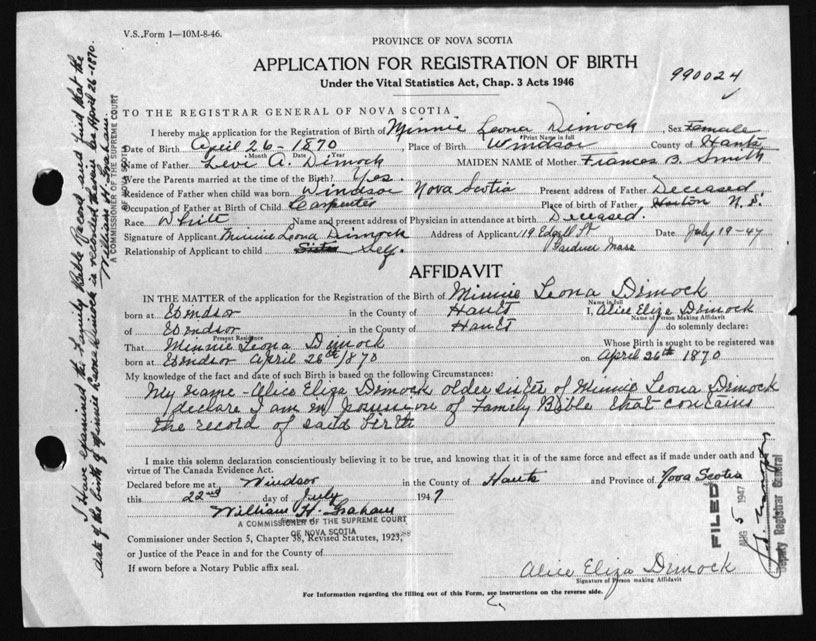 V.S. Form 1—10M-8-46.
PROVINCE OF NOVA SCOTIA
APPLICATION FOR REGISTRATION OF BIRTH
Under the Vital Statistics Act, Chap. 3 Acts 1946
990024
TO THE REGISTRAR GENERAL OF NOVA SCOTIA
I hereby make application for the Registration of Birth of Minnie Leona Dimock Sex Female
Print Name in full
Date of Birth April 26 - 1870 Place of Birth Windsor County of Hants
Month Date Year
Name of Father Levi A. Dimock MAIDEN NAME of Mother Frances B. Smith
Were the Parents married at the time of the Birth? Yes.
Residence of Father when child was born Windsor Nova Scotia Present address of Father Deceased
Occupation of Father at Birth of Child Carpenter Place of birth of Father Horton N.S.
Race White Name and present address of Physician in attendance at birth Deceased.
Signature of Applicant Minnie Leona Dimock Address of Applicant 119 Edgell St Date July 19-47
Gardner Mass
Relationship of Applicant to child Sister Self.
AFFIDAVIT
IN THE MATTER of the application for the Registration of the Birth of Minnie Leona Dimock
Name in full
born at Windsor in the County of Hants I, Alice Eliza Dimock
Name of Person Making Affidavit
of Windsor in the County of Hants do solemnly declare:
Present Residence
That Minnie Leona Dimock Whose Birth is sought to be registered was
born at Windsor April 26th 1870 on April 26th 1870
My knowledge of the fact and date of such Birth is based on the following Circumstances:
My name - Alice Eliza Dimock older sister of Minnie Leona Dimock
declare I am in possession of Family Bible that contains
the record of said birth
I make this solemn declaration conscientiously believing it to be true, and knowing that it is of the same force and effect as if made under oath and by
virtue of The Canada Evidence Act.
Declared before me at Windsor in the County of Hants and Province of Nova Scotia
this 22nd day of July 1947
William H. Graham
A COMMISSIONER OF THE SUPREME COURT
OF NOVA SCOTIA
Commissioner under Section 5, Chapter 38, Revised Statutes, 1923,
or Justice of the Peace in and for the County of
If sworn before a Notary Public affix seal.
Alice Eliza Dimock
Signature of Person making Affidavit
For Information regarding the filling out of this Form, see instructions on the reverse side.
I have examined the Family Bible Record and find that the
date of the birth of Minnie Leona Dimock is recorded therein as April 26-1870.
William H. Graham
A COMMISSIONER OF THE SUPREME COURT
OF NOVA SCOTIA
FILED
5 1947
Deputy Registrar General